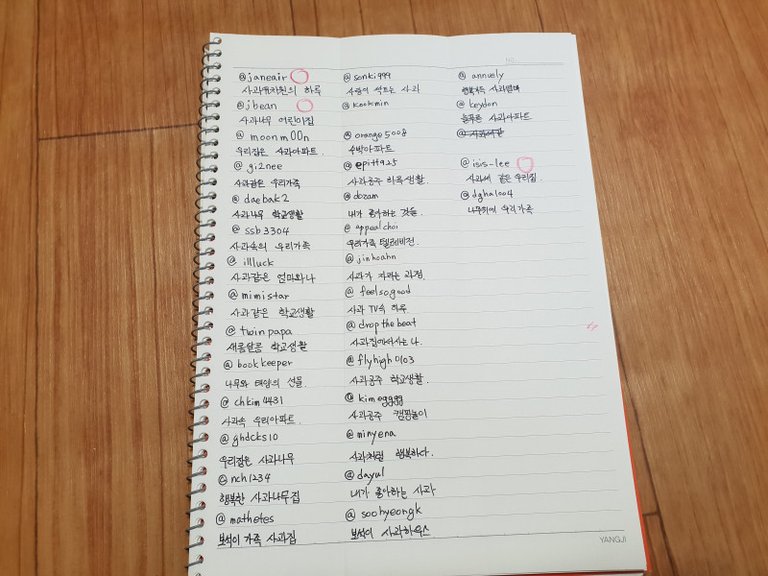 NO.
@janeair
사과유치원의 하루
@jbean
사과나무 어린이집
@moonm00n
우리집은 사과아파트.
@gi2nee
사과같은 우리가족
@daebak2
사과나무 학교생활
@ssb3304
사과속의 우리가족
@illluck
사과같은 엄마와나
@mimistar
사과같은 학교생활
@twinpapa
새콤달콤 학교생활
@bookkeeper
나무와 태양의 선물.
@chkim4431
사과속 우리아파트.
@ghdcks10
우리집은 사과나무
@nch1234
행복한 사과나무집
@mathetes
보석이 가족 사과집
@sonki999
사랑이 싹트는 사과
@kookmin
@orange5008
수박아파트
@epitt925
사과공주 하루생활.
@dozam
내가 좋아하는 것들.
@appealchoi
우리가족 텔레비전.
@jinhoahn
사과가 자라는 과정.
@feelsogood
사과 TV속 하루
@dropthebeat
사과집에서사는 나.
@flyhigh0103
사과공주 학교생활.
@kimegggg
사과공주 캠핑놀이
@minyena
사과처럼 행복하다.
@dayul
내가 좋아하는 사과
@soohyeongk
보석이 사과하우스
@annuely
행복가득 사과열매
@keydon
늘푸른 사과아파트
@isis-lee
사과세 같은 우리집.
@dgha1004
나무위에 우리가족
YANGJI